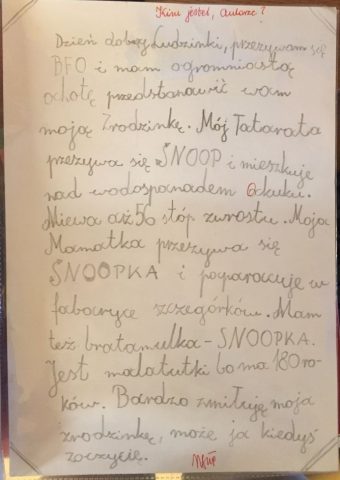 Kim jesteś, Autorze?
Dzień dobry Ludzinki, przezywam się
BFO i mam ogromniastą
ochotę przedstanawić wam
moją Zrodzinkę. Mój Tatarata
przezywa się SNOOP i mieszkuje
nad wodospanadem Okuku.
Miewa aż 50 stóp zwrostu. Moja
Mamatka przezywa się
SNOOPKA i paparaccuje w
fabacryce szczegórków. Mam
też bratamulka - SNOOPKA.
Jest malatutki bo ma 180 ro-
ków. Bardzo zmiłuję moja
zrodzinkę, może ja kiedyś
zoczycie.